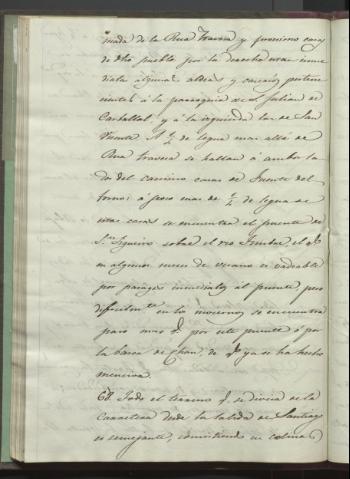 mada de la Rua Travesa y proximo casa
de dho pueblo por la derecha mas inme
diata algunas aldeas y caserios pertene
cientes á la parroquia de Sn Julian de
Carballal y á la izquierda las de San
Vicente. A ½ de legua mas allá de
Rua travesa se hallan á ambos la
dos del camino casas de Fuente del
forno: á poco mas de ¼ de legua de
estas casas se encuentra el puente de
Sn Sigueiro sobre el rio Tambre, el q.
en algunos meses de verano es vadeable
por parages inmediatos al puente, pero
dificilmte en los inviernos se encuentra
paso mas q. por este puente ó por
la barca de Chan, de q. ya se ha hecho
mencion.
6ª Todo el terreno q. se divisa de la
Carretera desde la salida de Santiago
es semejante, consistiendo en colinas